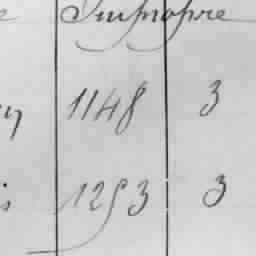 Impropre
1148 3
1253 3